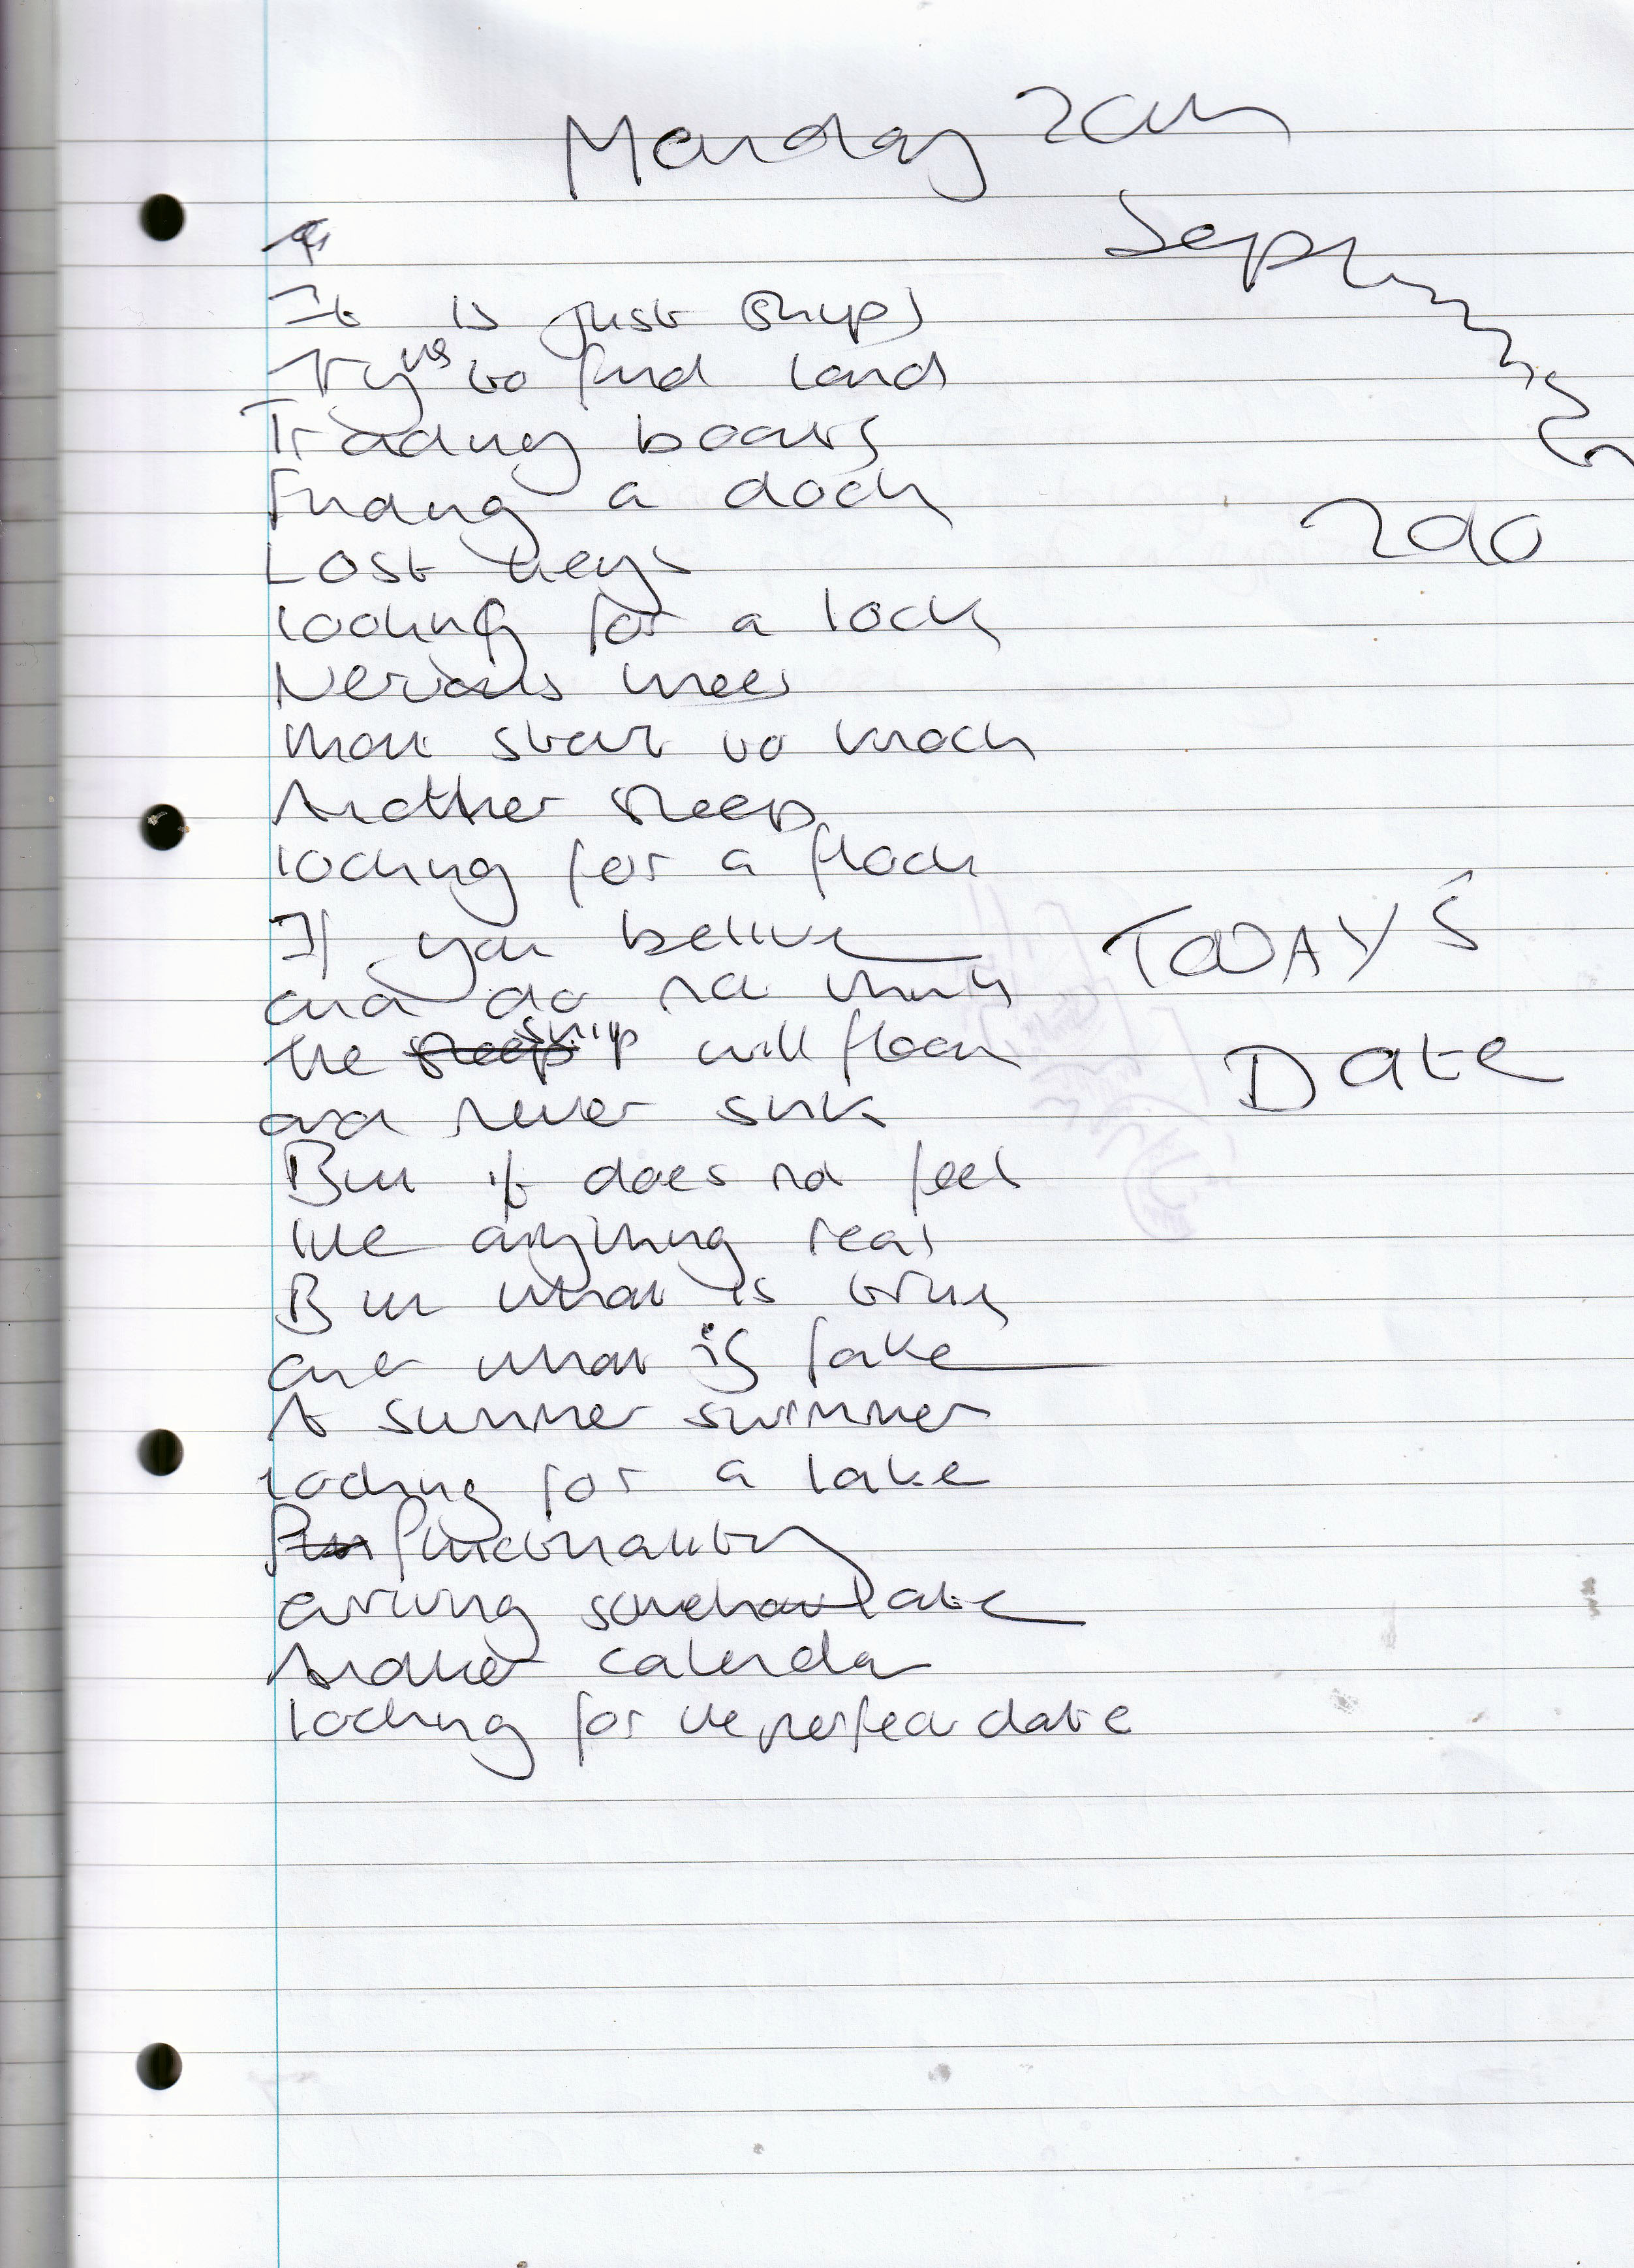 Monday 20th
September
2010
It is just ships
Trying to find land
Trading boats
Finding a dock
Lost keys
looking for a lock
Nervous knees
that start to knock
Another sheep
looking for a flock
If you believe
and do not think
the sheep ship will float
and never sink
But it does not feel
like anything real
But what is true
and what is fake
A summer swimmer
looking for a lake
Fun functionality
arriving somehow late
Another calendar
looking for the perfect date
TODAY'S
Date